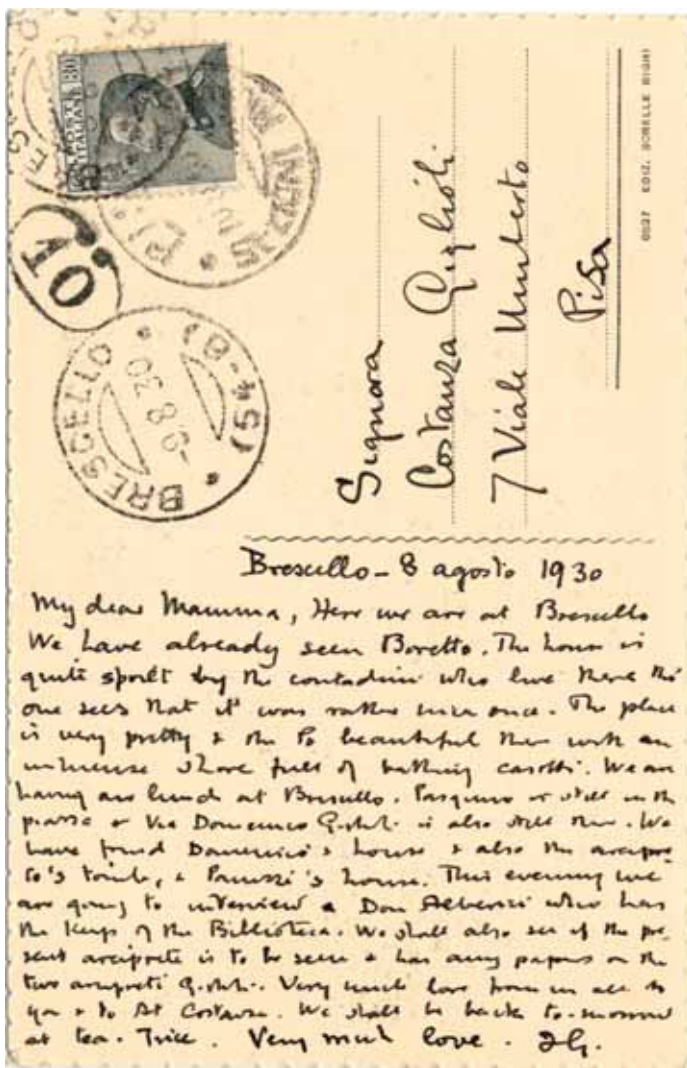 POSTE
ITALIANE
BRESCELLO
-9.8.30
0527 EDIZ. SORELLE BIGHI
Signora
Costanza Giglioli
7 Viale Umberto
Pisa
Brescello - 8 agosto 1930
My dear Mamma, Here we are at Brescello
We have already seen Boretto. The house is
quite spoilt by the contadini who live there tho'
one sees that it was rather nice once. The place
is very pretty & the Po beautiful there with an
immense shore full of bathing casotti. We are
having our lunch at Brescello. Pasquino is still in the
piazza & Via Domenico Giglioli is also still there. We
have found Domenico's house & also the arcipre
te's tomb, & Panizzi's house. This evening we
are going to interview a Don Alberici who has
the keys of the Biblioteca. We shall also see if the pre-
sent arciprete is to be seen & has any papers on the
two arcipreti Giglioli. Very much love from us all to
you & to At Costanza. We shall be back to-morrow
at tea. Trice. Very much love.